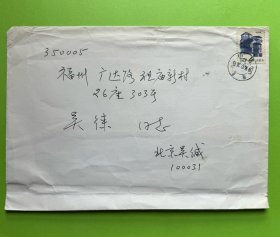 350005
福州 广达路 祖庙新村
26座 303号
吴 徕 同志
北京吴缄
100031